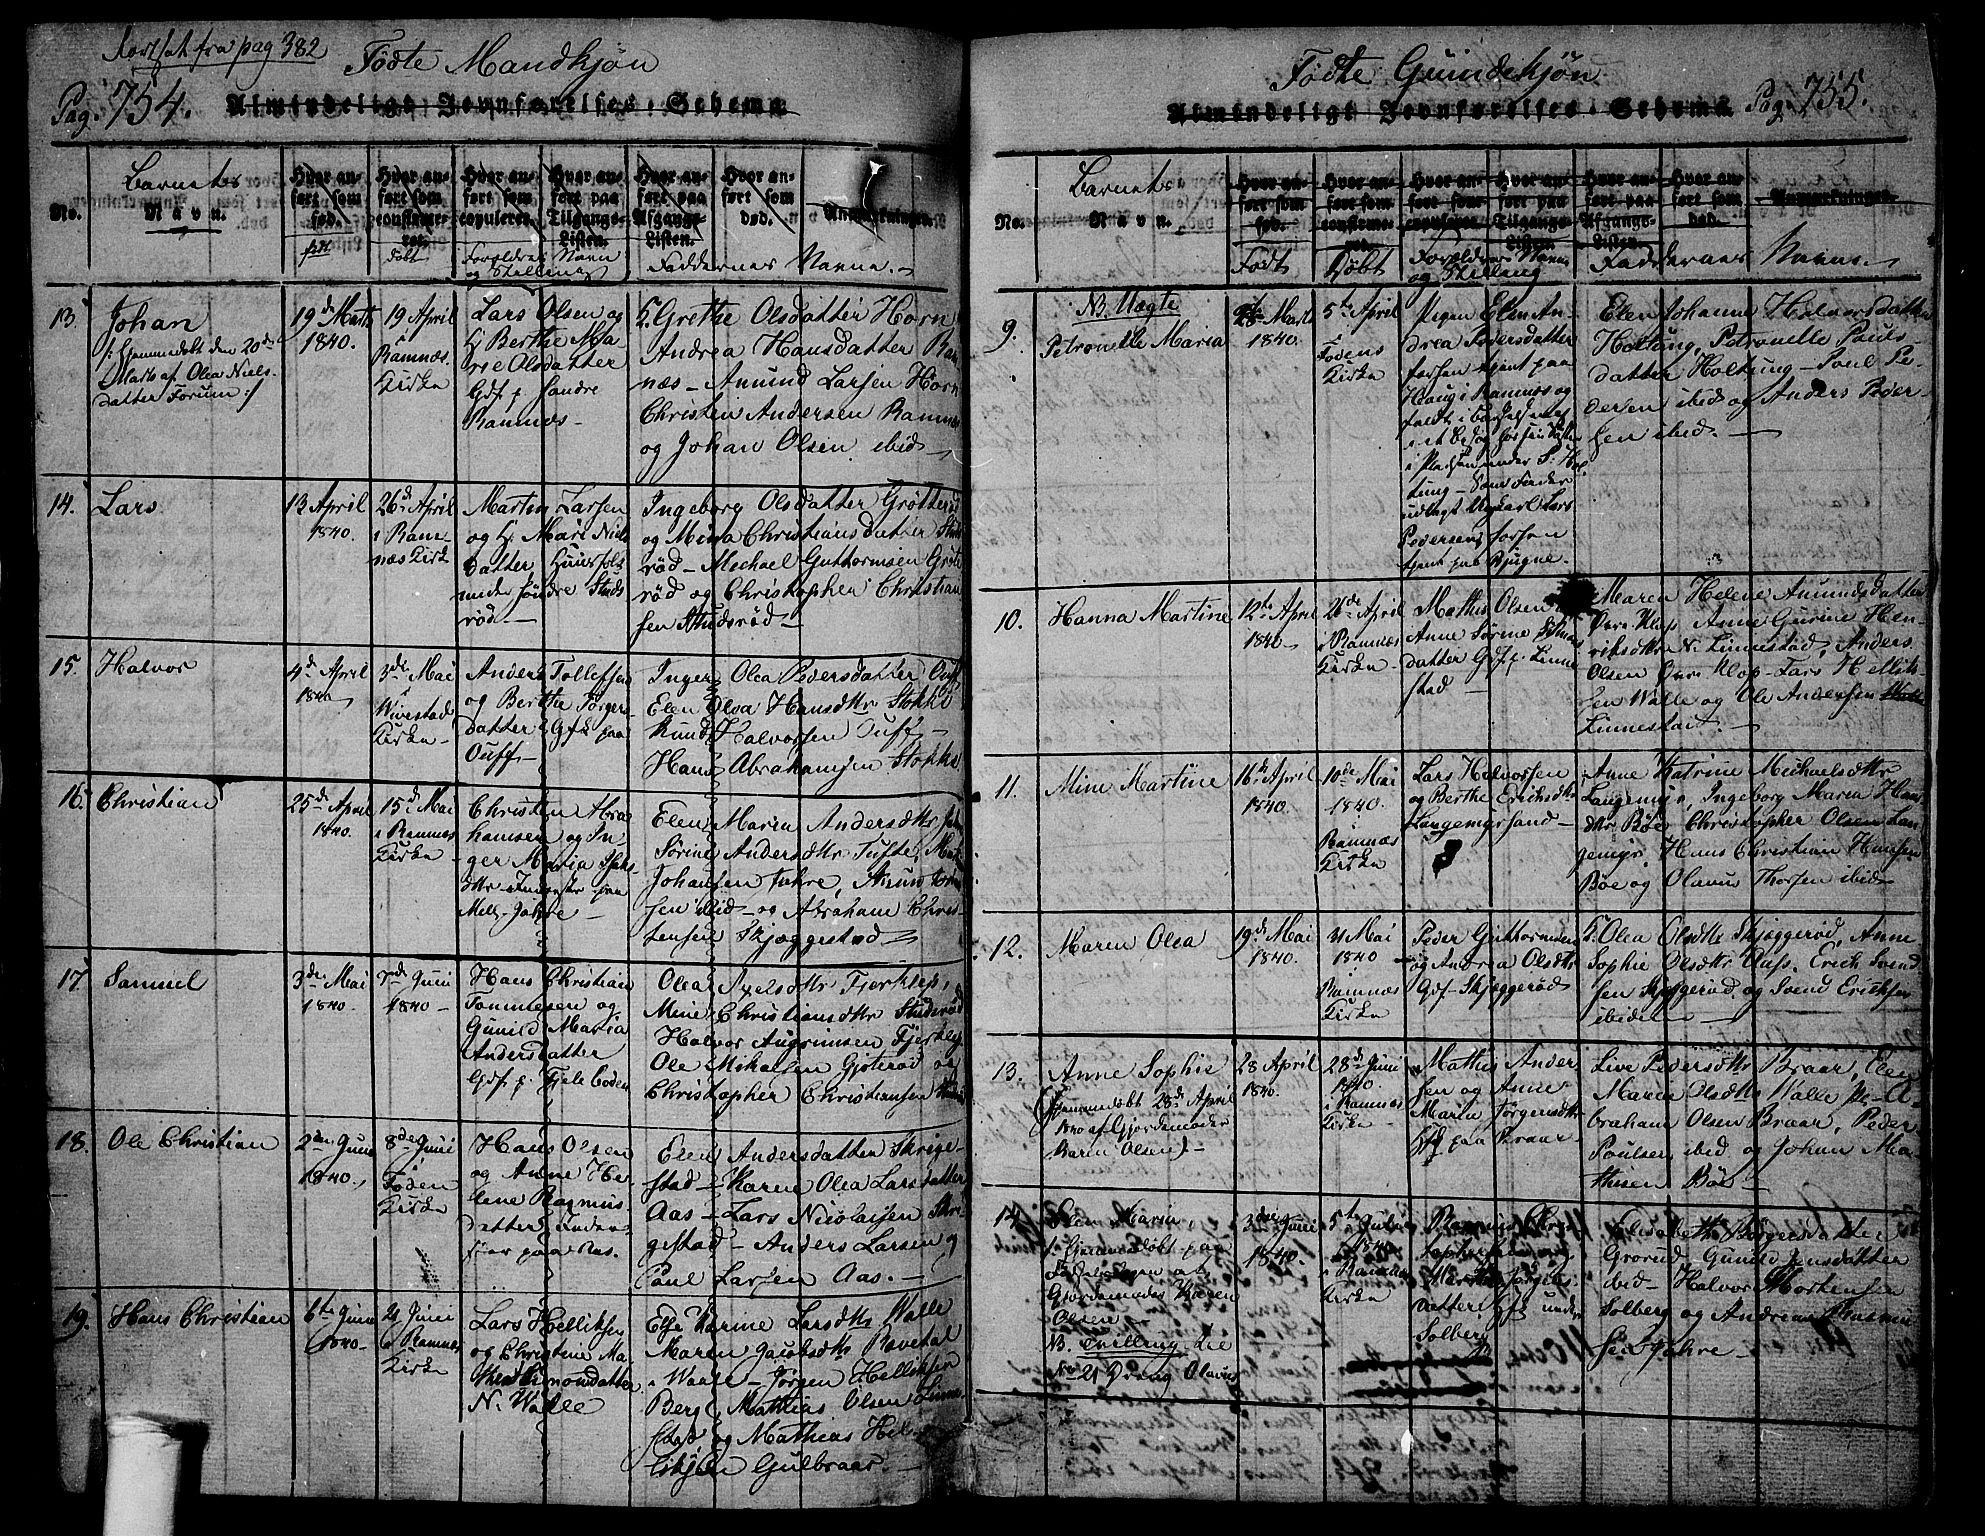 Fortsat fra pag 382
Fødte Mandkjøn
Pag. 754. Almindeligt Jevnførelses-Schema
No. Barnets Navn.
Hvor anført som fød. født
Hvor anført som confirmeret. døbt
Hvor anført som copuleret.
Hvor anført paa Tilgangs-Listen.
Forældres Navn og Stilling
Hvor anført paa Afgangs-Listen.
Hvor anført som død.
Anmærkninger.
Faddernes Navne.
13. Johan
/: Hjemmedøbt den 20de
Marts af Olea Niels-
datter Forum :/
19de Marts
1840.
19 April
Ramnæs
Kirke
Lars Olsen og
H. Berthe Ma-
rie Olsdatter
Gdf. p. Søndre
Ramnæs
K. Grethe Olsdatter Horn
Andrea Hansdatter Ram-
næs - Amund Larsen Horn
Christen Andersen Ramnæs
og Johan Olsen ibid
14. Lars
13 April
1840.
26de April
i Ram-
næs Kirke
Martin Larsen
og H. Mari Niels
datter Huusfolk
under Søndre Stuls-
rød
Ingeborg Olsdatter Grøtterød
og Mina Christiansdatter Stuls-
rød - Mechael Guttormsen Grøte-
rød og Christopher Christian-
sen Stulsrød
15. Halvor
4de April
1840
3de Mai
i
Wivestad
Kirke
Anders Tollefsen
og Berthe Jørgens-
datter Gfk paa
Ouff
Inger Olea Pedersdatter Ouff
Elen Olva Hansdtr Stokke
Knud Halvorsen Ouff
Hans Abrahamsen Stokke
16. Christian
25de April
1840.
15de Mai
i Ramnæs
Kirke
Christen Abra-
hamsen og In-
ger Maria Isaks-
dtr Inderster paa
Mell. Jahre
Elen Maria Andersdtr Jahre
Sørine Andersdtr Tufte,
Johansen Jahre, Amund
sen ibid og Abraham Chris-
tensen Skjæggestad
17. Samuel
3de Mai
1840.
7de Juni
1840
Hans Christian
Tommesen og
Gunild Maria
Andersdatter
Gdf. p. Fjeleboden
Olea Axelsdtr Fjerklep,
Mine Christiansdtr Stulsrød
Halvor Augrimsen Fjerklep
Ole Mikkelsen Gjøterød og
Christopher Christiansen
18. Ole Christian
2den Juni
1840
8de Juni
i
Føden
Kirke
Hans Olsen
og Anne He-
lene Rasmus
datter Inder-
ster paa Aas.
Elen Andersdatter Skrige-
stad - Karen Olea Larsdatter
Aas - Lars Nicolaisen Skri-
gestad - Anders Larsen og
Paul Larsen Aas.
19. Hans Christian
6te Juni
1840
21 Juni
i Ramnæs
Kirke
Lars Helliksen
og Christine Ma-
thea Simondatter
N. Walle
Else Karine Larsdtr Walle
Maren Jacobsdtr Rovedal
i Waale - Jørgen Helliksen
Berg, Mathias Olsen Linne-
stad og Mathias Hel-
liksen Gulbraar.

Fødte Quindekjøn
Almindeligt Jevnførelses-Schema Pag. 755.
No. Barnets Navn.
Hvor anført som fød. Født
Hvor anført som confirmeret. Døbt
Hvor anført som copuleret.
Hvor anført paa Tilgangs-Listen.
Forældres Navne og Stilling
Hvor anført paa Afgangs-Listen.
Hvor anført som død.
Anmærkninger.
Faddernes Navne.
9. NB. Uægte
Petronelle Maria
28 Marts
1840.
5te April
i
Fodens
Kirke
Pigen Elen An-
drea Pedersdatter
forhen tjent paa
Haug i Ramnæs og
faldt i Barselseng
i et besøg hos sin
i Pladsen under S. Hol-
tung - Som Fader
udlagt Ungkarl Lars
Pedersen, forhen
tjent paa Bjugne.
Elen Johanne Halvorsdatter
Holtung, Petronelle Pauls-
datter Holtung - Poul Pe-
dersen ibid og Anders Peder-
sen ibid.
10. Hanna Martine
12te April
1840
26de April
i Ramnæs
Kirke
Mathis Olsen
Anne Sørine
datter Gdf. p. Linne-
stad
Maren Helene Amundsdatter
Øvre Klop Anne Gurine Hen-
riksdtr N. Linnestad, Anders
Olsen Øvre Klop - Lars Hellik-
sen Walle og Ole Andersen
Linnestad
11. Mine Martine
16de April
1840.
10de Mai
1840.
i
Ramnæs
Kirke
Lars Halvorsen
og Berthe Ericksdtr
Langemyrsand
Anne Katrine Michaelsdtr
Langemyr, Ingeborg Maria Hans-
dtr Bøe, Christopher Olsen Lan-
gemyr, Hans Christian Hansen
Bøe og Olavus Thorsen ibid
12. Maren Olea
19de Mai
1840.
31 Mai
1840
i
Ramnæs
Kirke
Peder Guttormsen
og Andrea Olsdtr
Gdf. Skjæggerød
K. Olea Olsdtr Skjæggerød, Anne
Sophie Olsdtr Aass. Erich Svend-
sen Skjæggerød og Svend Ericksen
ibidem
13. Anne Sophie
(Hjemmedøbt 28de April
1840 af Gjordemoder
Karen Olsen)
28 April
1840.
28de Juni
1840
i Ramnæs
Kirke
Mathis Ander-
sen og Anne
Maria Jørgensdtr
Hff paa Braar
Live Pedersdtr Braar, Elen
Maria Olsdtr Walle, A-
braham Olsen Braar, Peder
Poulsen ibid og Johan Ma-
thisen Bøe
14. Elen Maria,
/: Hjemmedøbt paa
Fødselsdagen af
Gjordemoder Karen
Olsen
NB. Tvilling, see
No 21 Dreng Olavus
3die Juni
1840.
5te Juli
1840
i Ramnæs
Kirke
Rasmus Chri-
stophersen og
Maria Jørgens-
datter Gfk under
Solberg
Elisabeth Børgersdatter
Grorud Gunild Jensdatter
ibid - Halvor Mortensen
Solberg og Andreas Rasmu-
sen Jahre